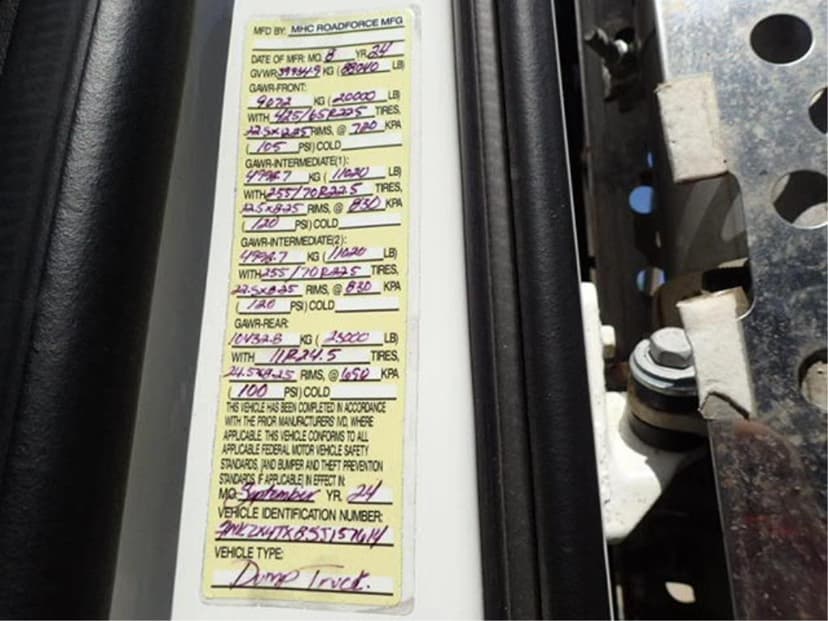 MFD BY: MHC ROADFORCE MFG
DATE OF MFR: MO. 8 YR. 24
GVWR 39934.9 KG (88040 LB)
GAWR-FRONT:
9072 KG (20000 LB)
WITH 425/65R22.5 TIRES,
22.5x12.25 RIMS, @ 720 KPA
(105 PSI) COLD
GAWR-INTERMEDIATE(1):
4998.7 KG (11020 LB)
WITH 255/70R22.5 TIRES,
22.5x8.25 RIMS, @ 830 KPA
(120 PSI) COLD
GAWR-INTERMEDIATE(2):
4998.7 KG (11020 LB)
WITH 255/70R22.5 TIRES,
22.5x8.25 RIMS, @ 830 KPA
(120 PSI) COLD
GAWR-REAR:
10432.8 KG (23000 LB)
WITH 11R24.5 TIRES,
24.5x8.25 RIMS, @ 690 KPA
(100 PSI) COLD
THIS VEHICLE HAS BEEN COMPLETED IN ACCORDANCE
WITH THE PRIOR MANUFACTURERS' IVD, WHERE
APPLICABLE. THIS VEHICLE CONFORMS TO ALL
APPLICABLE FEDERAL MOTOR VEHICLE SAFETY
STANDARDS, [AND BUMPER AND THEFT PREVENTION
STANDARDS, IF APPLICABLE] IN EFFECT IN:
MO. September YR. 24
VEHICLE IDENTIFICATION NUMBER:
VEHICLE TYPE:
Dump Truck.